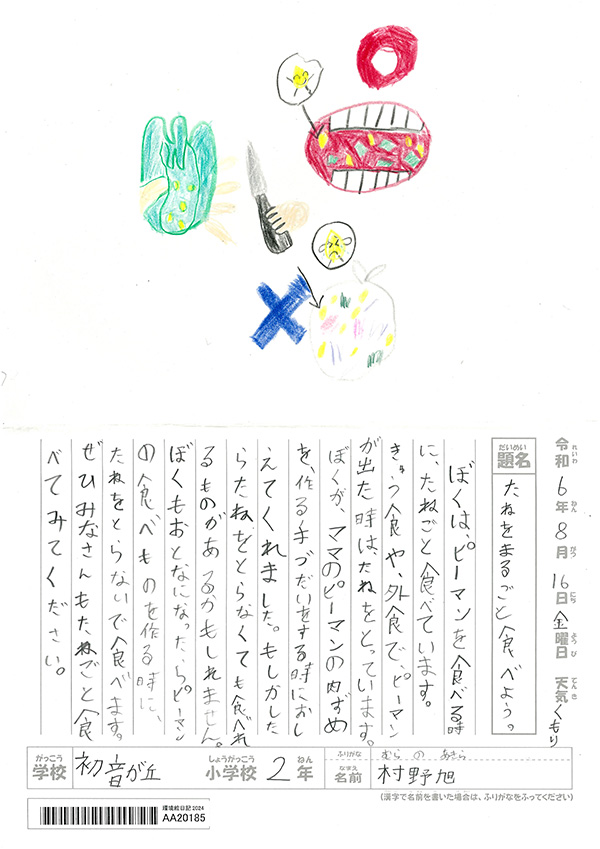 令和6年8月16日金曜日 天気くもり
れいわ ねん がつ にち ようび てんき
だいめい
題名
たねをまるごと食べよう。
ぼくは、ピーマンを食べる時
に、たねごと食べています。
きゅう食や、外食で、ピーマン
が出た時は、たねをとっています。
ぼくが、ママのピーマンの肉づめ
を、作る手づだいをする時におし
えてくれました。もしかした
らたねをとらなくても食べれ
るものがあるかもしれません。
ぼくもおとなになったらピーマン
の食べものを作る時に、
たねをとらないで食べます。
ぜひみなさんもたねごと食
べてみてください。
がっこう
学校 初音が丘 小学校 2年
しょうがっこう ねん
ふりがな むらの あきら
なまえ
名前 村野旭
(漢字で名前を書いた場合は、ふりがなをふってください)
環境絵日記2024
AA20185